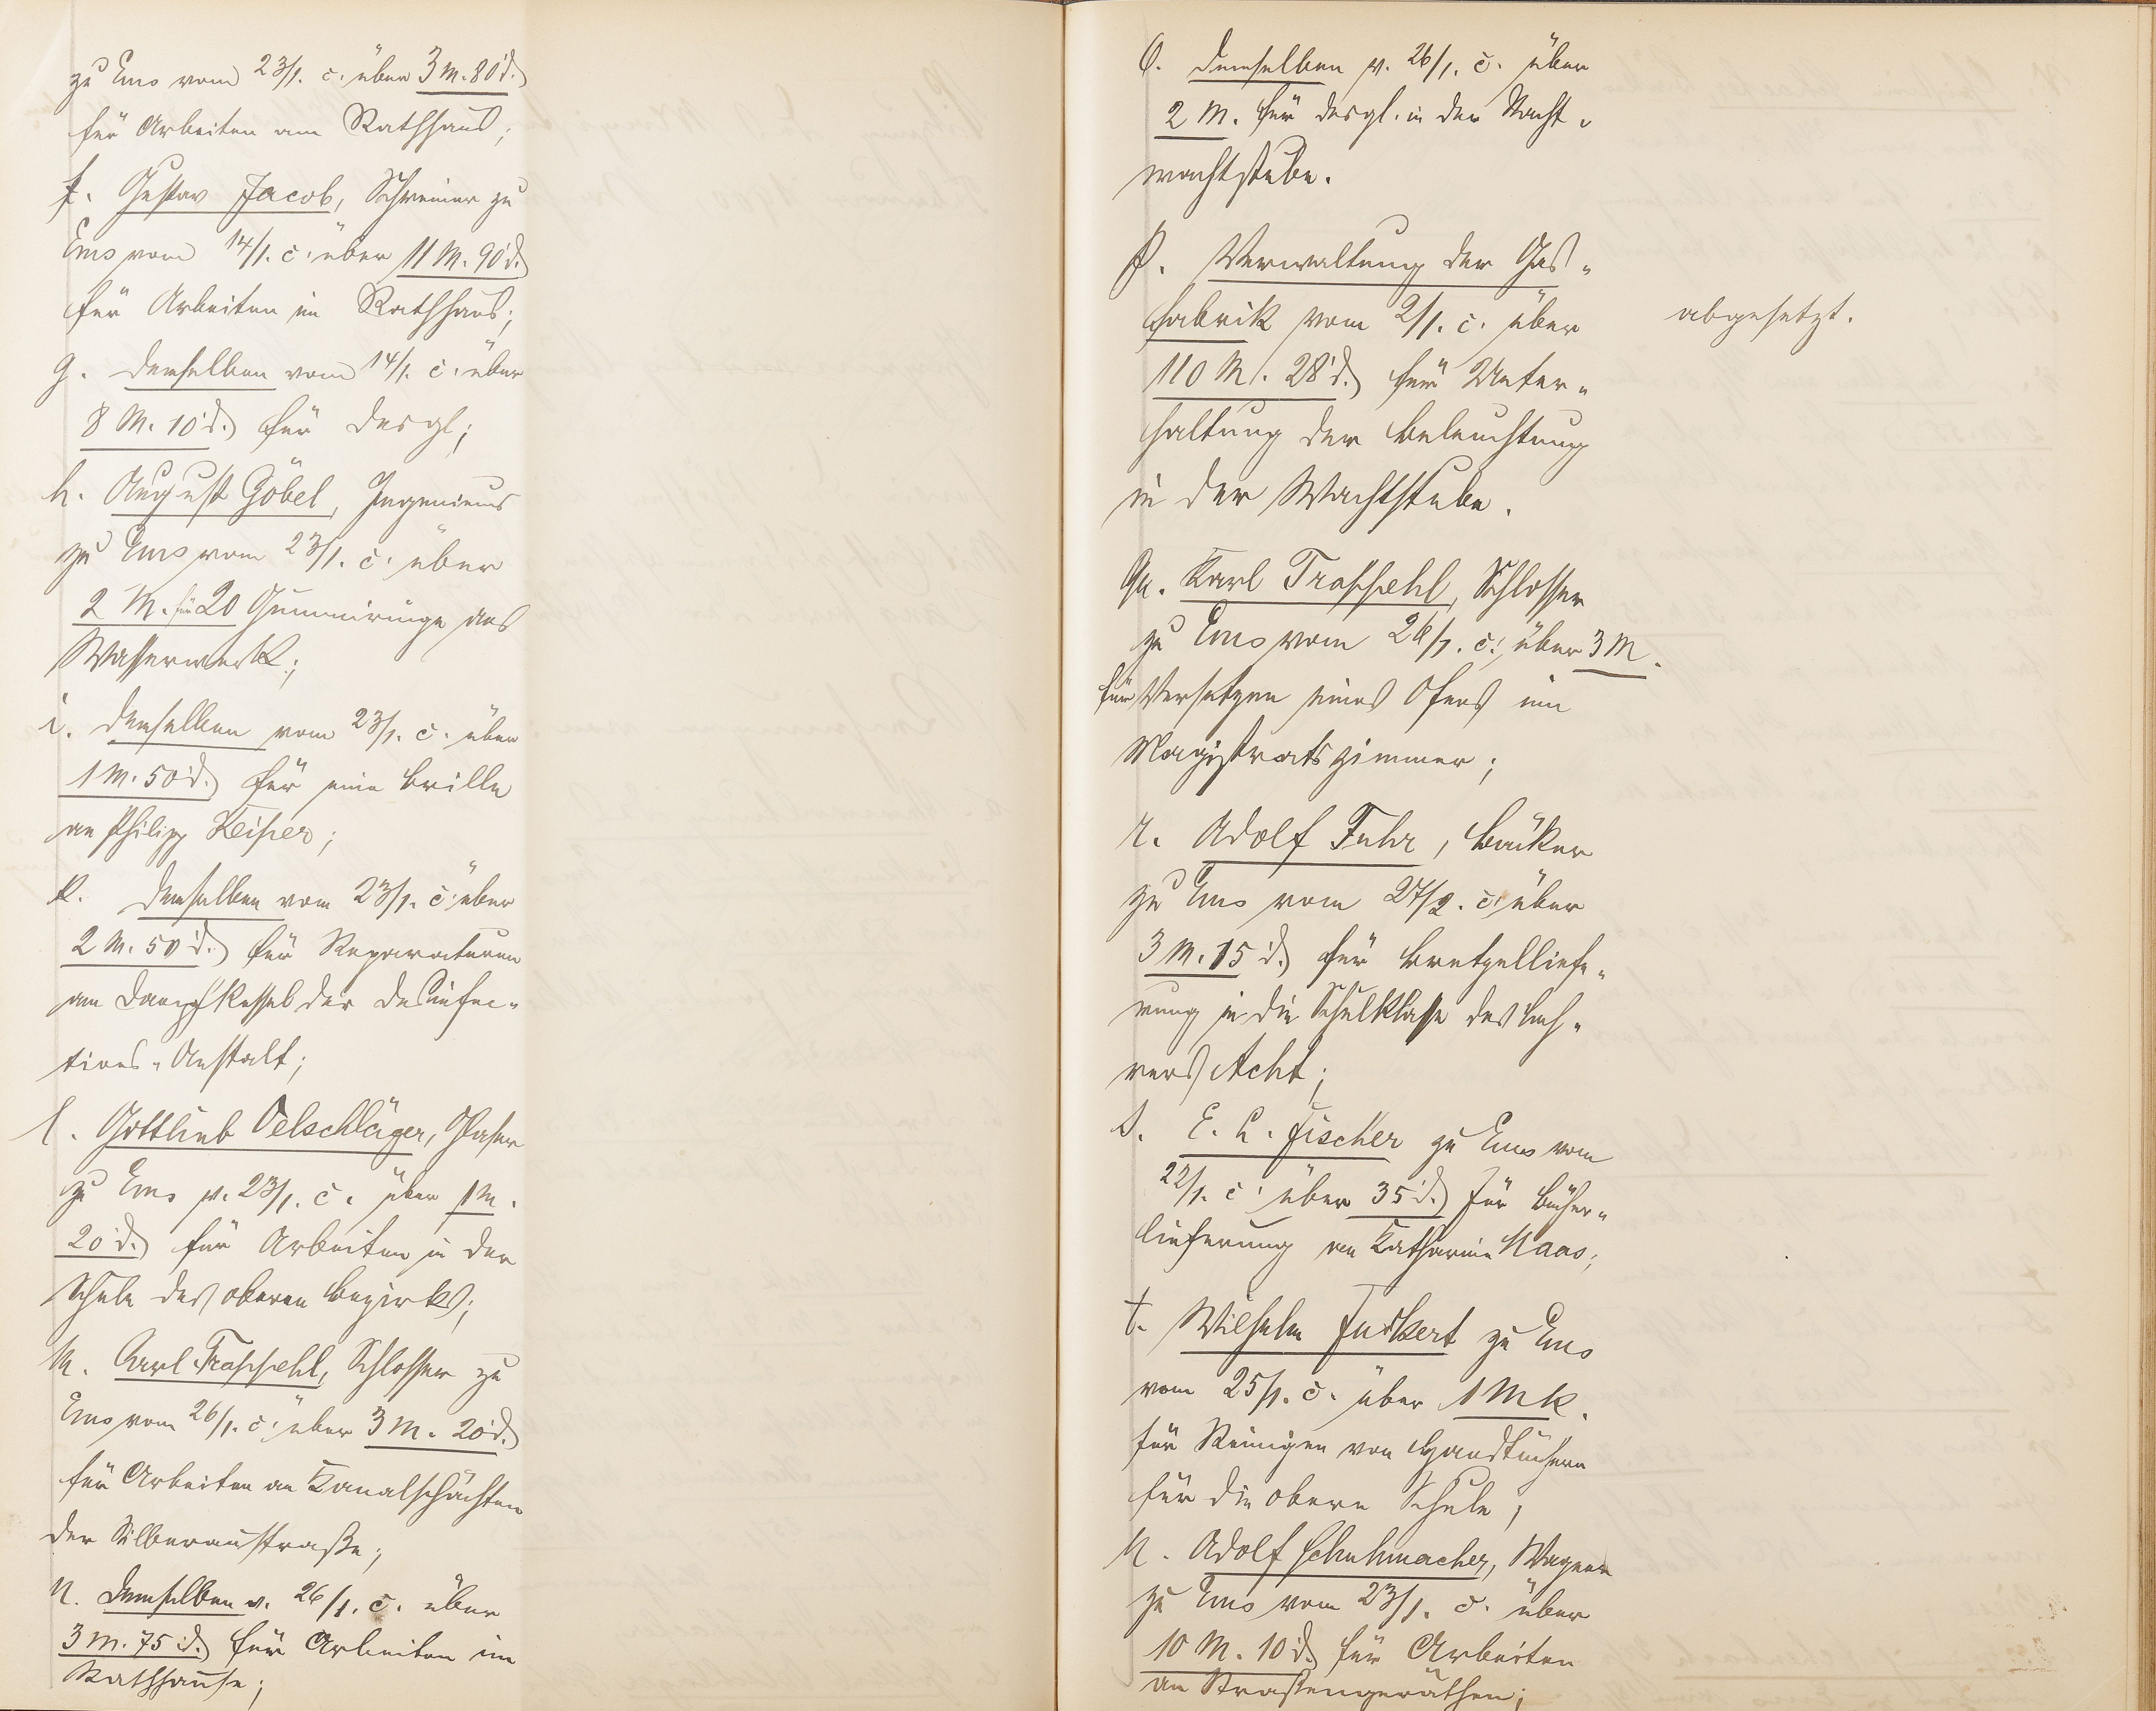 zu Ems vom 23/1. c. über 3 M. 80 d.
für Arbeiten am Rathhaus;
f. Gustav Jacob, Schreiner zu
Ems vom 14/1. c. über 11 M. 90 d.
für Arbeiten im Rathhaus;
g. demselben vom 14/1. c. über
8 M. 10 d. für desgl;
h. August Göbel, Ingenieur
zu Ems vom 23/1. c. über
2 M. für 20 Gummiringe ans
Wasserwerk;
i. demselben vom 23/1. c. über
1 M. 50 d. für eine Brille
an Philipp Keiper;
k. demselben vom 23/1. c. über
2 M. 50 d. für Reparaturen
am Dampfkessel der Desinfec-
tions-Anstalt;
l. Gottlieb Oelschläger, Glaser
zu Ems v. 23/1. c. über 1 M.
20 d. für Arbeiten in der
Schule des oberen Bezirks;
m. Carl Trapphehl, Schlosser zu
Ems vom 26/1. c. über 3 M. 20 d.
für Arbeiten an Kanalschächten
der Silberaustraße;
n. demselben v. 26/1. c. über
3 M. 75 d. für Arbeiten im
Rathhause;
o. demselben v. 26/1. c. über
2 M. für desgl. in der Nacht-
wachtstube.
p. Verwaltung der Gas-
fabrik vom 2/1. c. über
abgesetzt.
110 M. 28 d. für Unter-
haltung der Beleuchtung
in der Wachtstube.
qu. Karl Trapphehl, Schlosser
zu Ems vom 26/1. c. über 3 M.
für Versetzen eines Ofens im
Magistratszimmer;
r. Adolf Fuhr, Bäcker
zu Ems vom 27/2. c. über
3 M. 15 d. für Bretzelliefe-
rung in die Schulklasse des Leh-
rers Acht;
s. E. L. Fischer zu Ems vom
22/1. c. über 35 d. für Bücher-
lieferung an Katharine Maas;
t. Wilhelm Juckert zu Ems
vom 25/1. c. über 1 Mk.
für Reinigen von Handtüchern
für die obere Schule;
u. Adolf Schuhmacher, Wagner
zu Ems vom 23/1. c. über
10 M. 10 d. für Arbeiten
an Strassengeräthen;